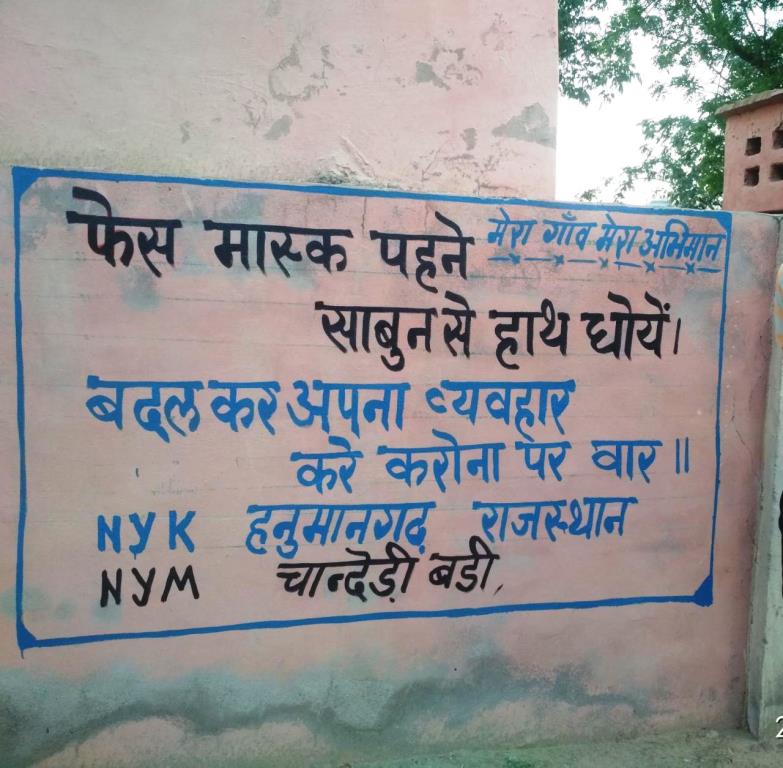 फेस मास्क पहने
मेरा गाँव मेरा अभिमान
साबुन से हाथ धोयें।
बदल कर अपना व्यवहार
करे करोना पर वार॥
NYK हनुमानगढ़ राजस्थान
NYM चान्देड़ी बडी,
2